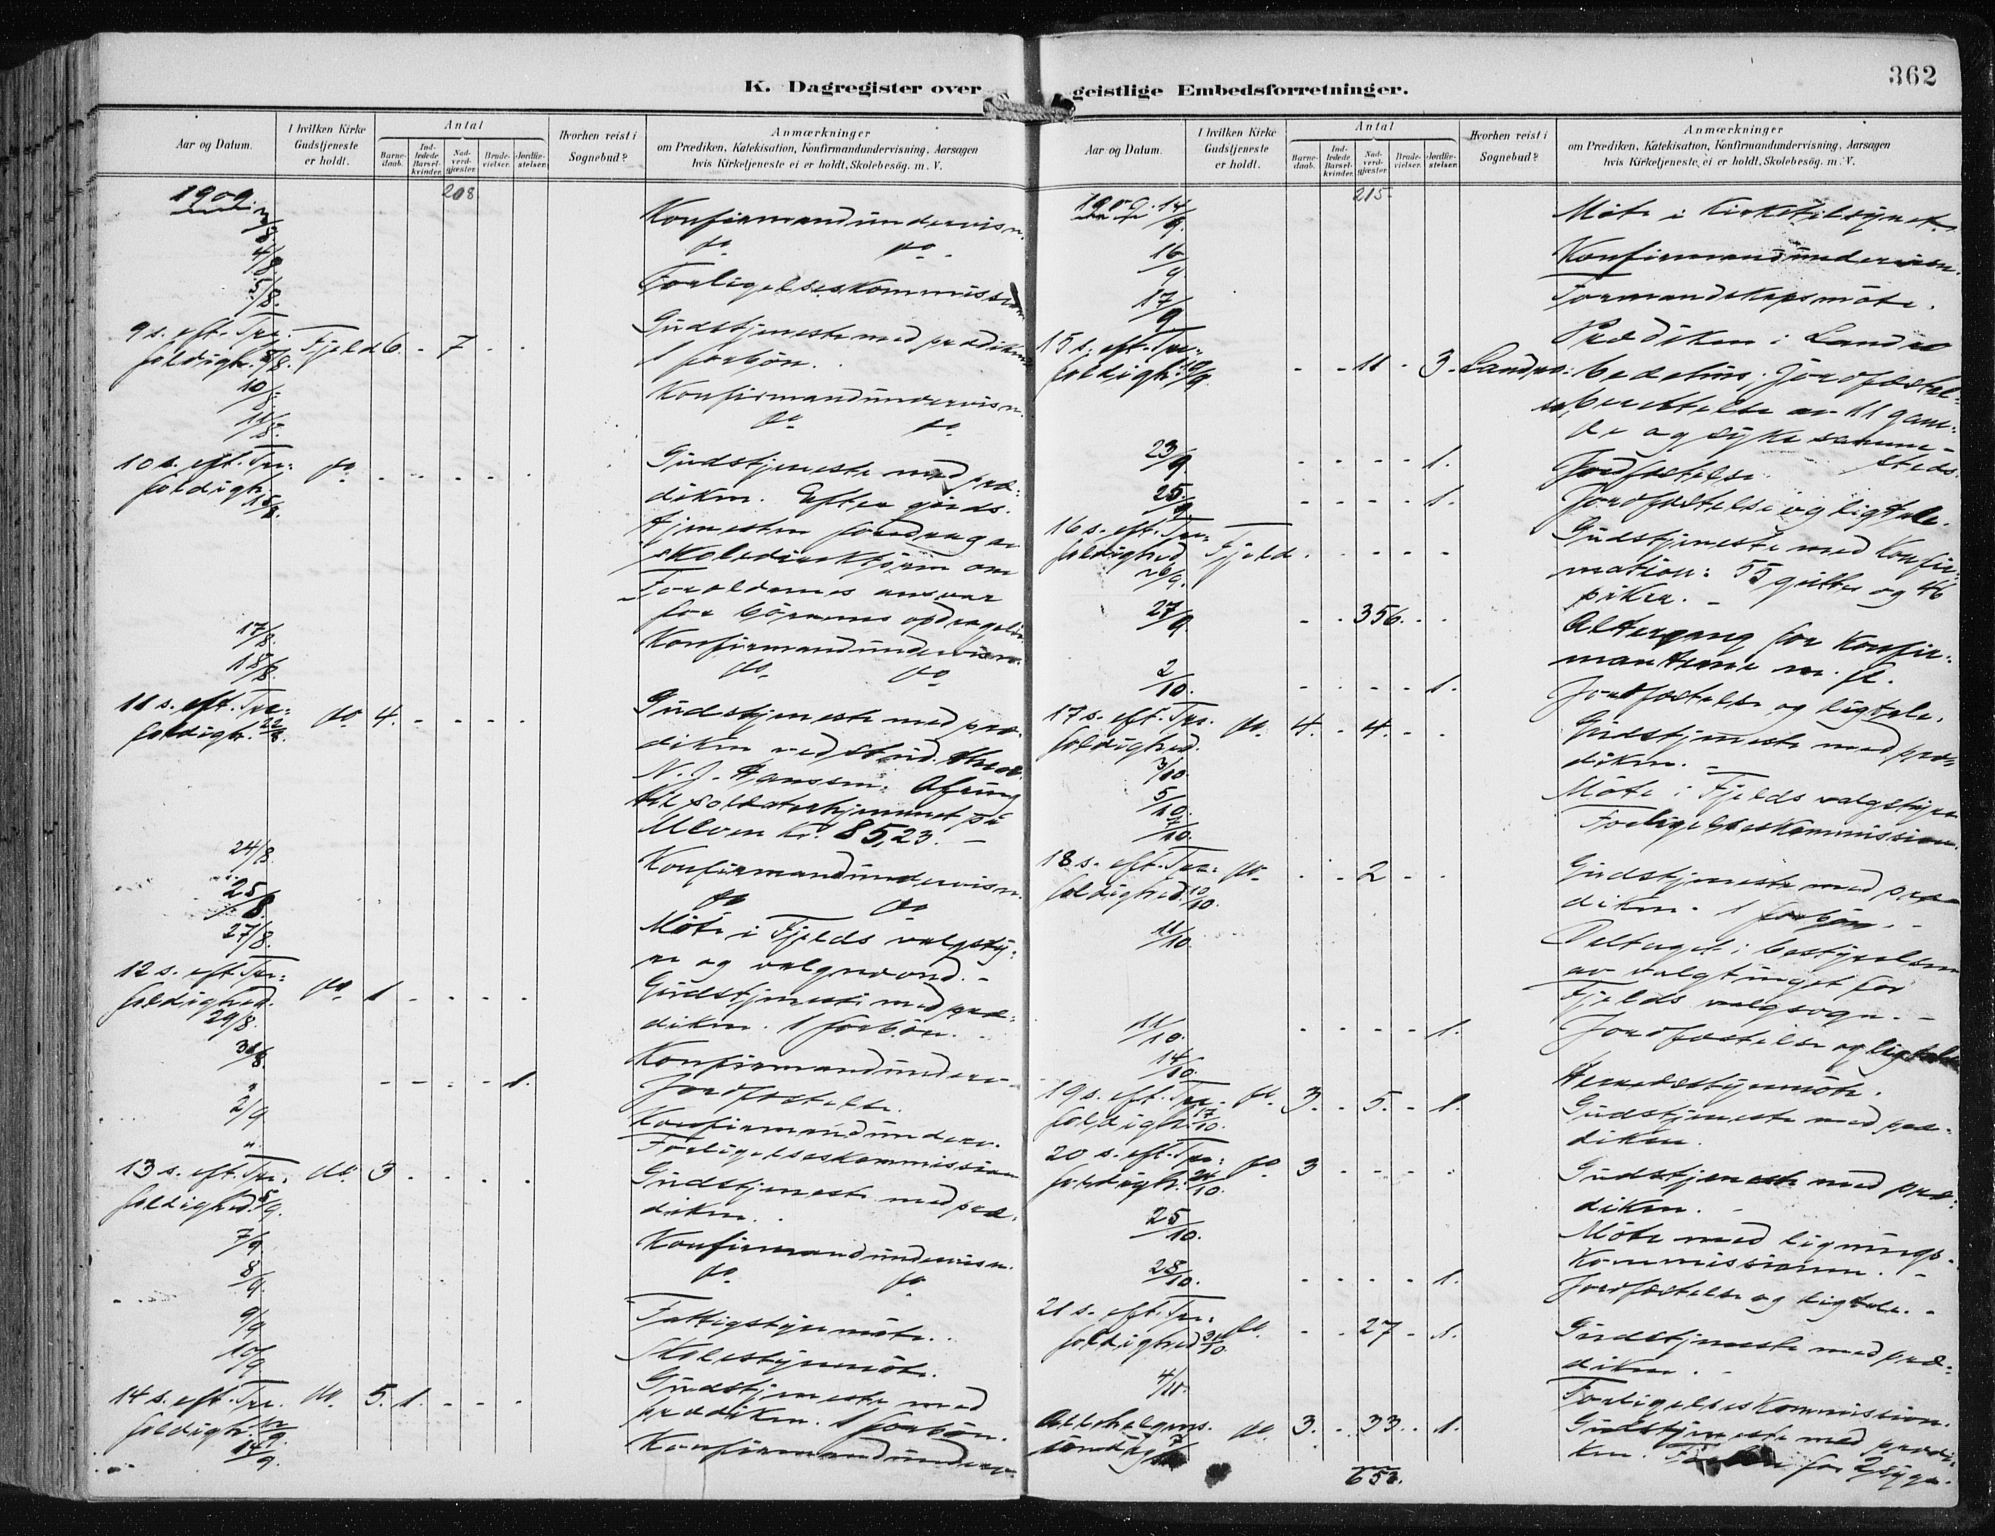 362
K. Dagregister over geistlige Embedsforretninger.
Aar og Datum.
I hvilken Kirke Gudstjeneste er holdt.
Antal
Barne-daab.
Ind-ledede Barsel-kvinder.
Nad-verd-gjæster
Brude-vielser.
Jordfæ-stelser.
Hvorhen reist i Sognebud?
Anmærkninger
om Prædiken, Katekisation, Konfirmandundervisning, Aarsagen
hvis Kirketjeneste ei er holdt, Skolebesøg. m. V.
1909. 208
3/8 Konfirmandundervisn.
4/8 do do.
5/8. Forligelseskommission
9 s. eft. Tre- Fjeld 6 - 7 - - Gudstjeneste med prædiken
foldigh. 8/8. 1 forbøn.
10/8 Konfirmandundervisn.
11/8 do do
10 s. eft. Tre- do - - - - - Gudstjeneste med præ-
foldigh. 15/8. diken. Efter guds-
tjenesten foredrag av
skoledirektøren om
Forældrenes ansvar
for børnenes opdragelse
17/8. Konfirmandundervisn.
18/8 do. do
11 s. eft. Tre- do 4. - - - - Gudstjeneste med præ-
foldigh. 22/8. diken ved stud. theol.
N. J. Hanssen. Ofring
til soldaterhjemmet på
Ulven kr. 85,23. -
24/8. Konfirmandundervisn.
25/8. do do
27/8. Møte i Fjelds valgsty-
re og valgnevnd. -
12 s. eft. Tre- do. 1 - - - - Gudstjeneste med præ-
foldighed. 29/8. diken. 1 forbøn.
31/8 Konfirmandunderv-
" - - - - 1. Jordfæstelse.
2/9 Konfirmandunderv.
" Forligelseskommission
13 s. eft. Tre- do. 3 - - - - Gudstjeneste med præ-
foldighed. 5/9. diken.
7/9 Konfirmandundervisn.
8/9. do do
9/9 Fattigstyremøte.
10/9 Skolestyremøte.
14 s. eft. Tre- do. 5. 1. - - - Gudstjeneste med
foldigh. 12/9. prædiken. 1 forbøn.
14/9 Konfirmandunderv.
Aar og Datum.
I hvilken Kirke Gudstjeneste er holdt.
Antal
Barne-daab.
Ind-ledede Barsel-kvinder.
Nad-verd-gjæster
Brude-vielser.
Jordfæ-stelser.
Hvorhen reist i Sognebud?
Anmærkninger
om Prædiken, Katekisation, Konfirmandundervisning, Aarsagen
hvis Kirketjeneste ei er holdt, Skolebesøg. m. V.
1909. 14/9. 215 Møte i Kirketilsynet.
16/9 Konfirmandundervisn.
17/9 Formandskapsmøte.
15 s. eft. Tre- - - 11 - 3. Landro: Prædiken i Landro
foldigh. 19/9. bedehus; Jordfæstel-
se berettelse av 11 gam-
le og syke samme-
steds.
23/9 - - - - 1. Jordfæstelse.
25/9 - - - - 1. Jordfæstelse og ligtale.
16 s. eft. Tre- Fjeld. - - - - - Gudstjeneste med Konfir-
foldighed 26/9. mation: 55 gutter og 46
piker. -
27/9 - - 356. - - Altergang for Konfir-
manterne m. fl.
2/10. - - - - 1. Jordfæstelse og ligtale.
17 s. eft. Tre- do. 4. - 4. - - Gudstjeneste med præ-
foldighed. 3/10. diken. -
5/10. Møte i Fjelds valgstyre
7/10. Forligelseskommission.
18 s. eft. Tre- do - - 2 - - Gudstjeneste med præ-
foldighed. 10/10. diken. 1 forbøn. -
11/10 Deltaget i bestyrelsen
av valgtinget for
Fjelds valgsogn. -
11/10. - - - - 1. Jordfæstelse og ligtale
14/10. Herredsstyremøte.
19 s. eft. Tre- do. 3. - 5. - 1. Gudstjeneste med præ-
foldigh. 17/10. diken.
20 s. eft. Tre- do 3 - - - - Gudstjeneste med præ-
foldigh. 24/10. diken. -
25/10. Møte med lignings-
kommissionen. -
28/10. - - - - 1. Jordfæstelse og ligtale. -
21 s. eft. Tre- do. - - 27 - 1. Gudstjeneste med præ-
foldighed 31/10. diken. -
4/11. Forligelseskommission.
Allehelgens- do. 3. - 33 - 1. Gudstjeneste med prædi-
søndag 7/11 ken. for 2 syge.
653.